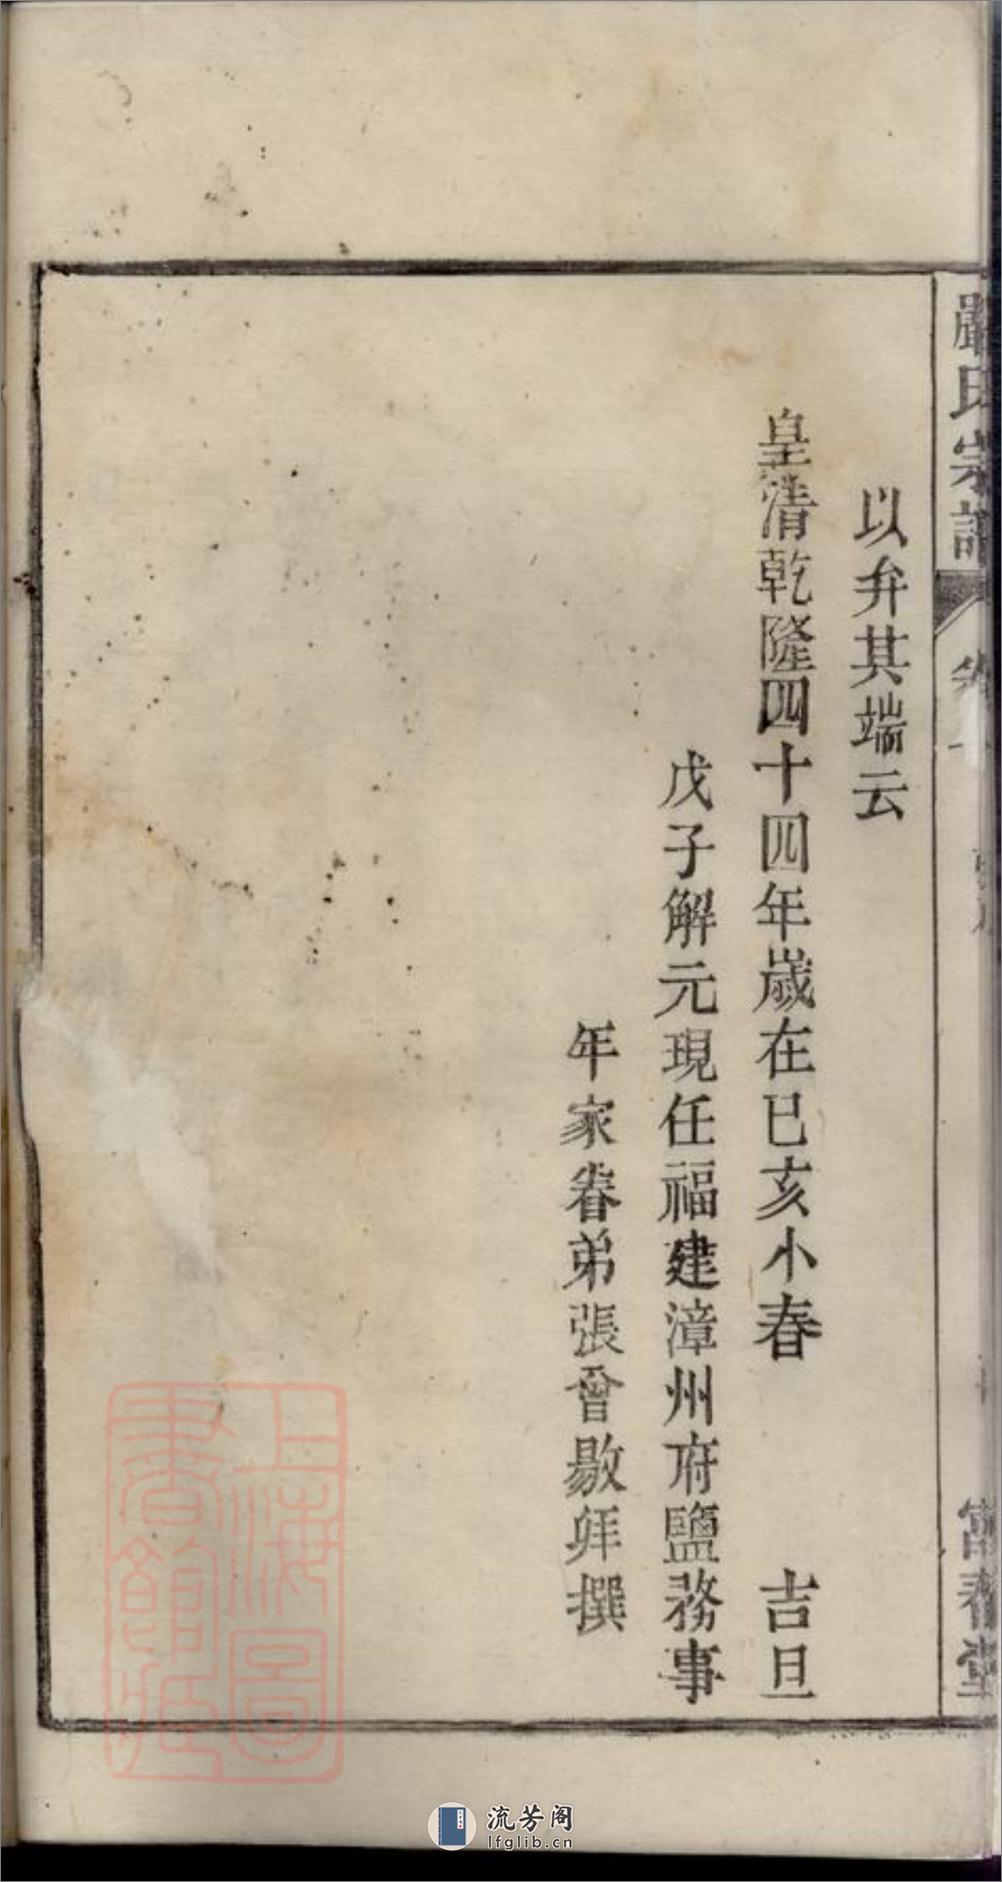 嚴氏宗譜
卷一
富春堂
以弁其端云
皇淸乾隆四十四年歲在已亥小春 吉旦
戊子解元現任福建漳州府鹽務事
年家眷弟張曾敭拜撰
上海圖
書館藏
流芳阁
lfglib.cn